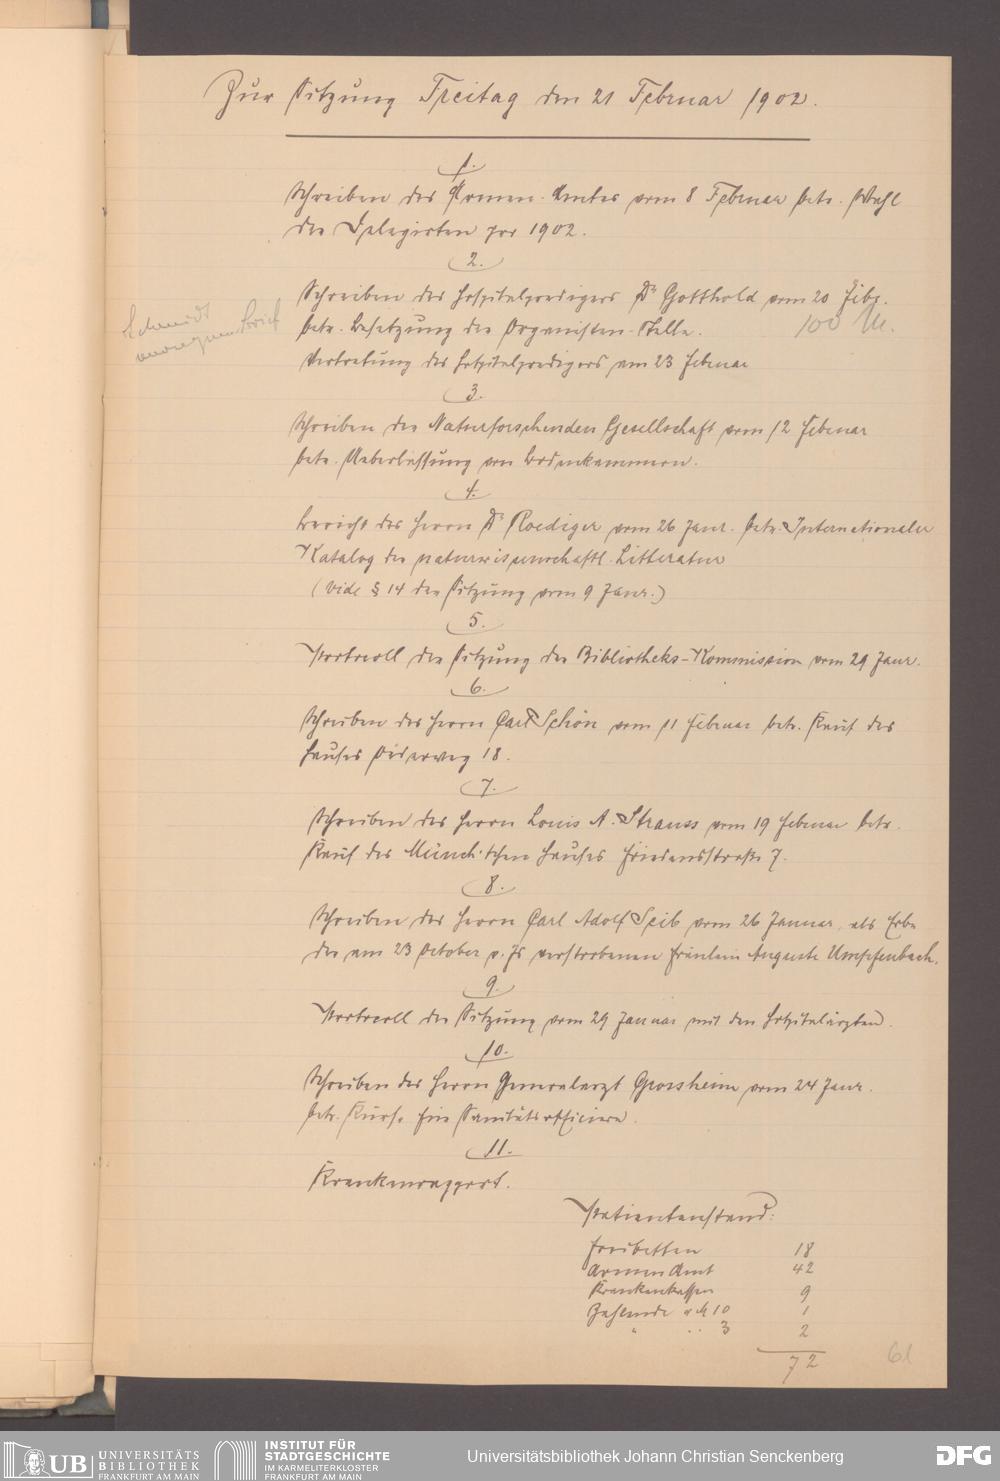 Zur Sitzung Freitag den 21 Februar 1902.
1.
Schreiben des Armen-Amtes vom 8 Februar betr. Wahl
der Delegirten pro 1902.
2.
Schreiben des Hospitalpredigers Dr Gotthold vom 20 Febr.
betr. Besetzung der Organisten-Stelle.
100 M.
Vertretung des Hospitalpredigers am 23 Februar
Schmidt
Brief
3.
Schreiben der Naturforschenden Gesellschaft vom 12 Februar
betr. Ueberlassung von Bodenkammern.
4.
Bericht des Herrn Dr Roediger vom 26 Janr. betr. Internationaler
Katalog der naturwissenschaftl. Litteratur
(vide § 14 der Sitzung vom 9 Janr.)
5.
Protocoll der Sitzung der Bibliotheks-Kommission vom 29 Janr.
6.
Schreiben des Herrn Carl Schön vom 11 Februar betr. Kauf des
Hauses Oederweg 18.
7.
Schreiben des Herrn Louis A. Strauss vom 19 Februar betr.
Kauf des Münch'schen Hauses Friedensstraße 7.
8.
Schreiben des Herrn Carl Adolf Seib vom 26 Januar, als Erbe
der am 23 October v. Js verstorbenen Fräulein Auguste Umpfenbach.
9.
Protocoll der Sitzung vom 29 Januar mit den Hospitalärzten.
10.
Schreiben des Herrn Generalarzt Grossheim vom 24 Janr.
betr. Kurse für Sanitätsofficiere.
11.
Krankenrapport.
Patientenstand:
Freibetten 18
Armen Amt 42
Krankenkassen 9
Zahlende à M 10 1
" " 3 2
72
61
UB UNIVERSITÄTS
BIBLIOTHEK
FRANKFURT AM MAIN
INSTITUT FÜR
STADTGESCHICHTE
IM KARMELITERKLOSTER
FRANKFURT AM MAIN
Universitätsbibliothek Johann Christian Senckenberg
DFG